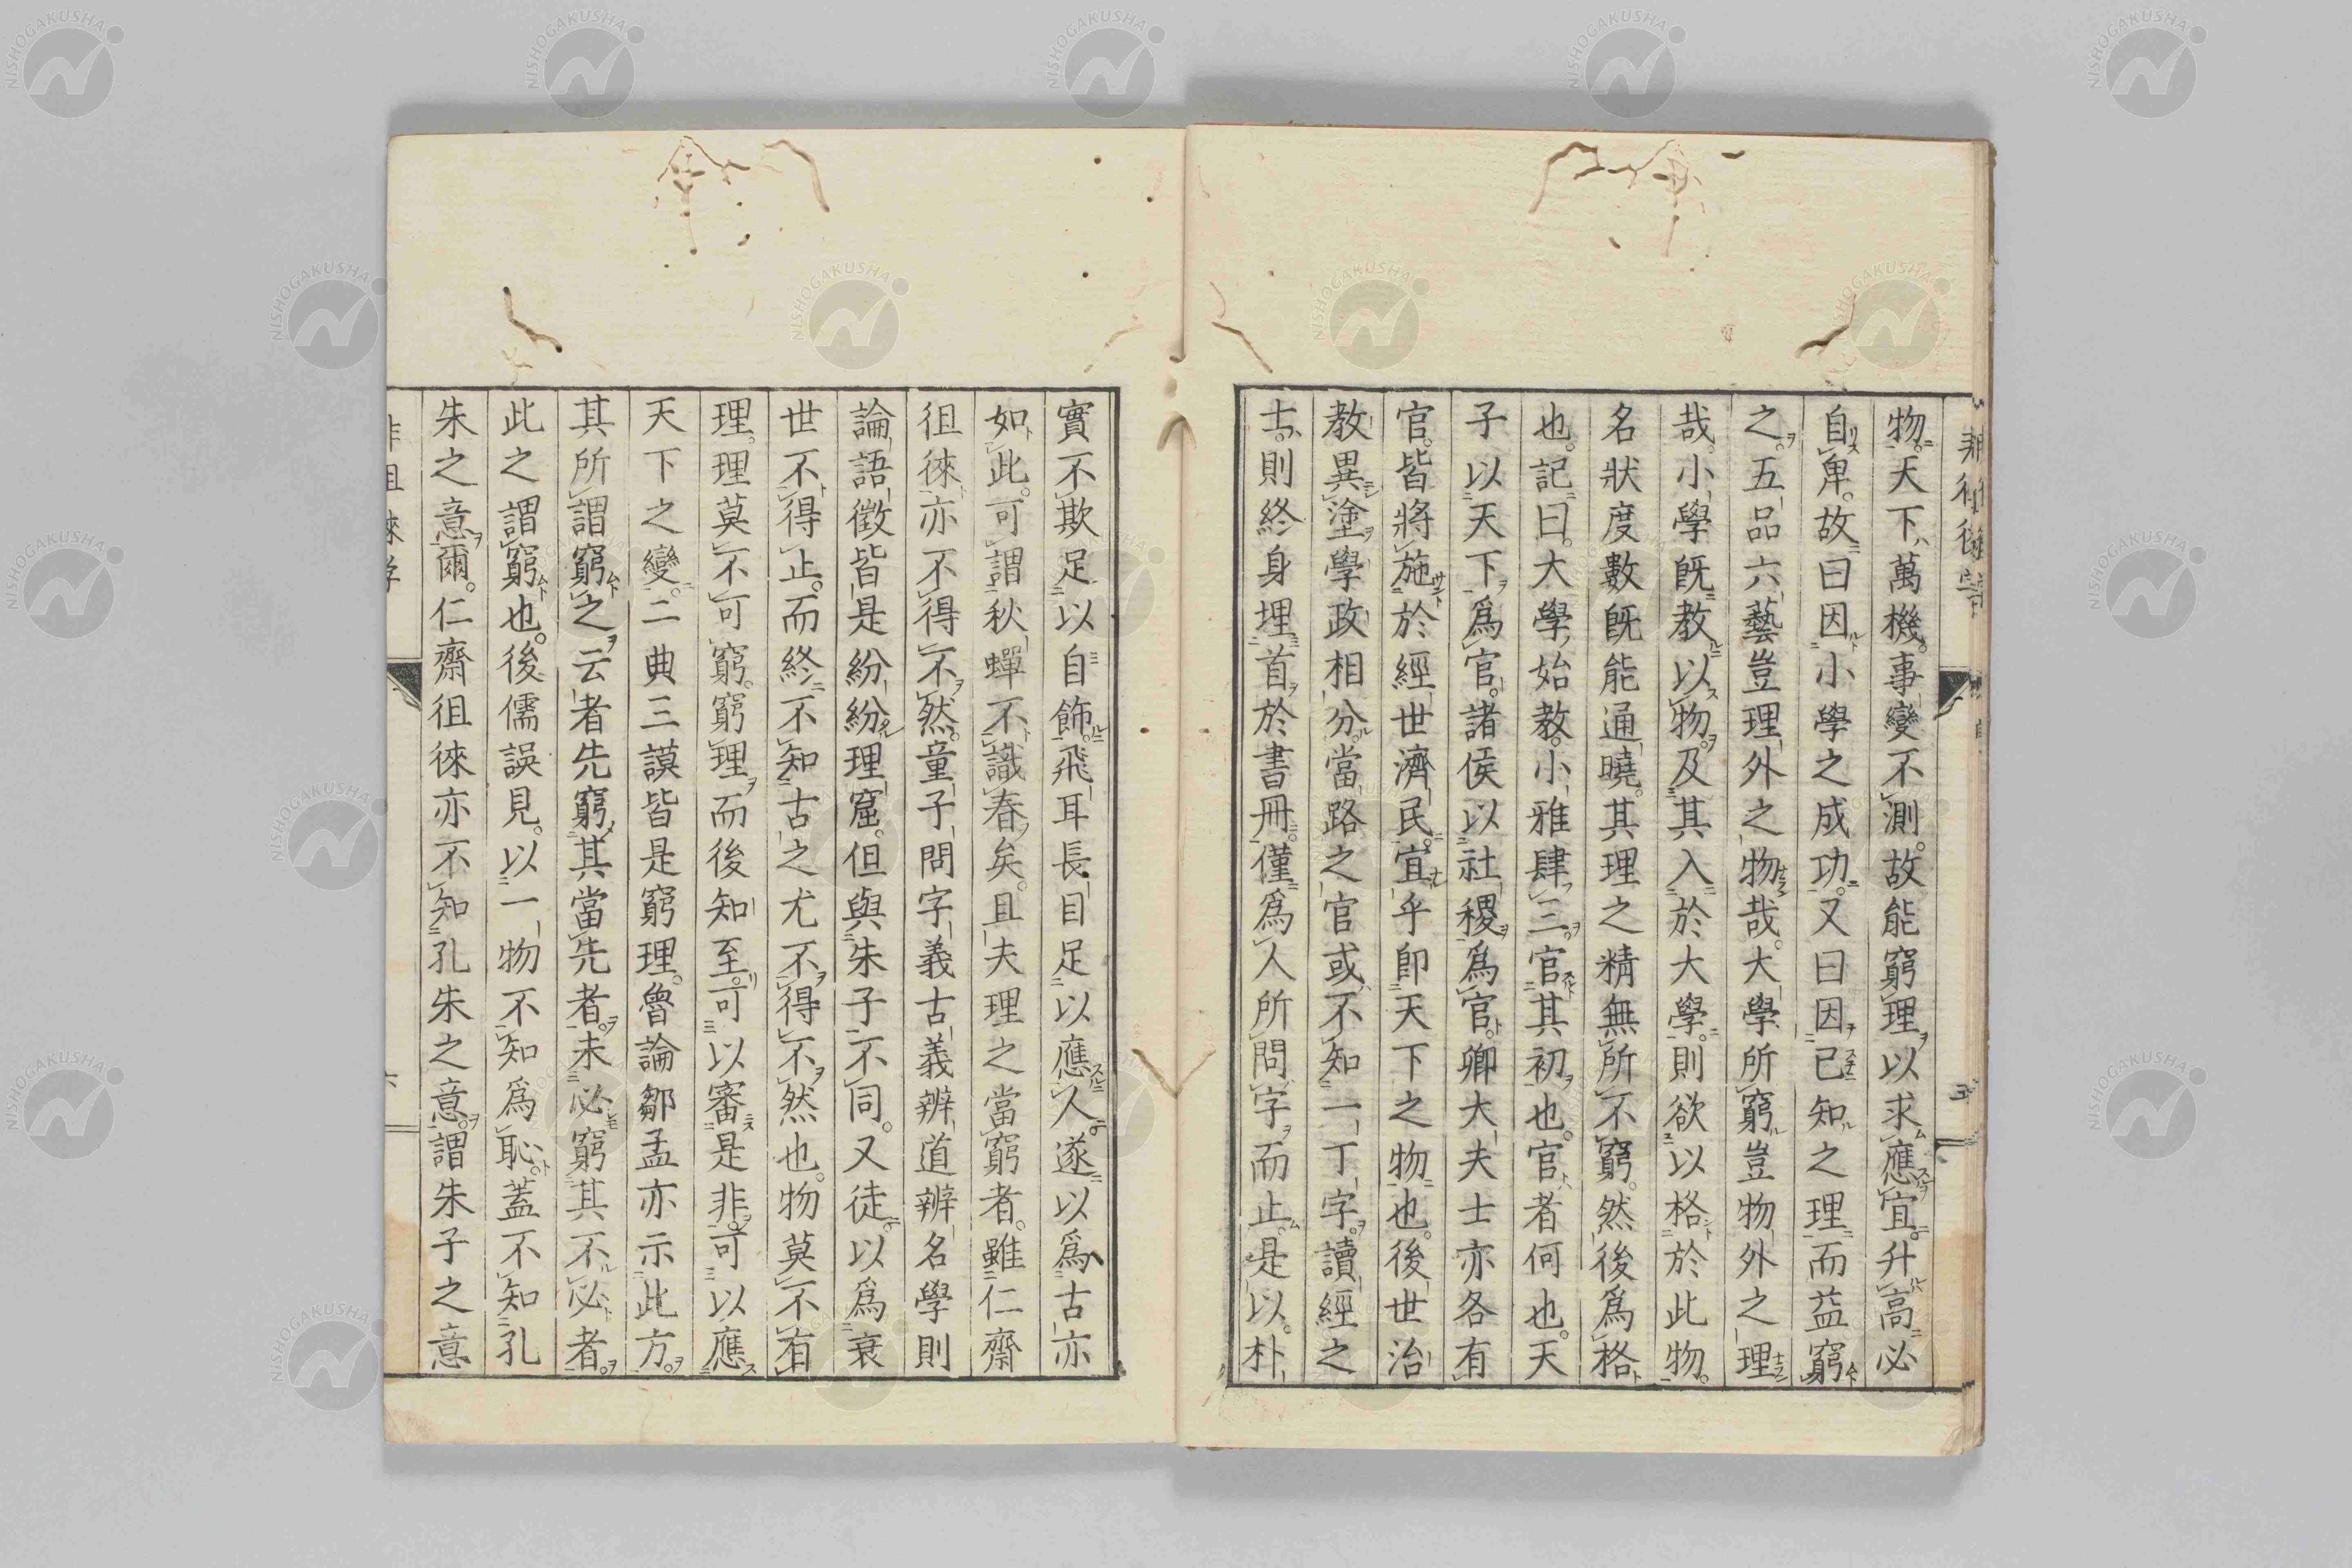 物天下萬機事變不測故能窮理以求應宜升高必
自卑故曰因小學之成功又曰因已知之理而益窮
之五品六藝豈理外之物哉大學所窮豈物外之理
哉小學既教以物及其入於大學則欲以格於此物
名狀度數既能通曉其理之精無所不窮然後爲格
也記曰大學始教小雅肆三官其初也官者何也天
子以天下爲官諸侯以社稷爲官卿大夫士亦各有
官皆將施於經世濟民宜乎即天下之物也後世治
教異塗學政相分當路之官或不知一丁字讀經之
士則終身埋首於書冊僅爲人所問字而止是以朴
實不欺足以自飾飛耳長目足以應人遂以爲古亦
如此可謂秋蟬不識春矣且夫理之當窮者雖仁齋
徂徠亦不得不然童子問字義古義辨道辨名學則
論語徵皆是紛紛理窟但與朱子不同又徒以爲衰
世不得止而終不知古之尤不得不然也物莫不有
理理莫不可窮窮理而後知至可以審是非可以應
天下之變二典三謨皆是窮理魯論鄒孟亦示此方
其所謂窮之云者先窮其當先者未必窮其不必者
此之謂窮也後儒誤見以一物不知爲恥蓋不知孔
朱之意爾仁齋徂徠亦不知孔朱之意謂朱子之意
NISHOGAKUSHA